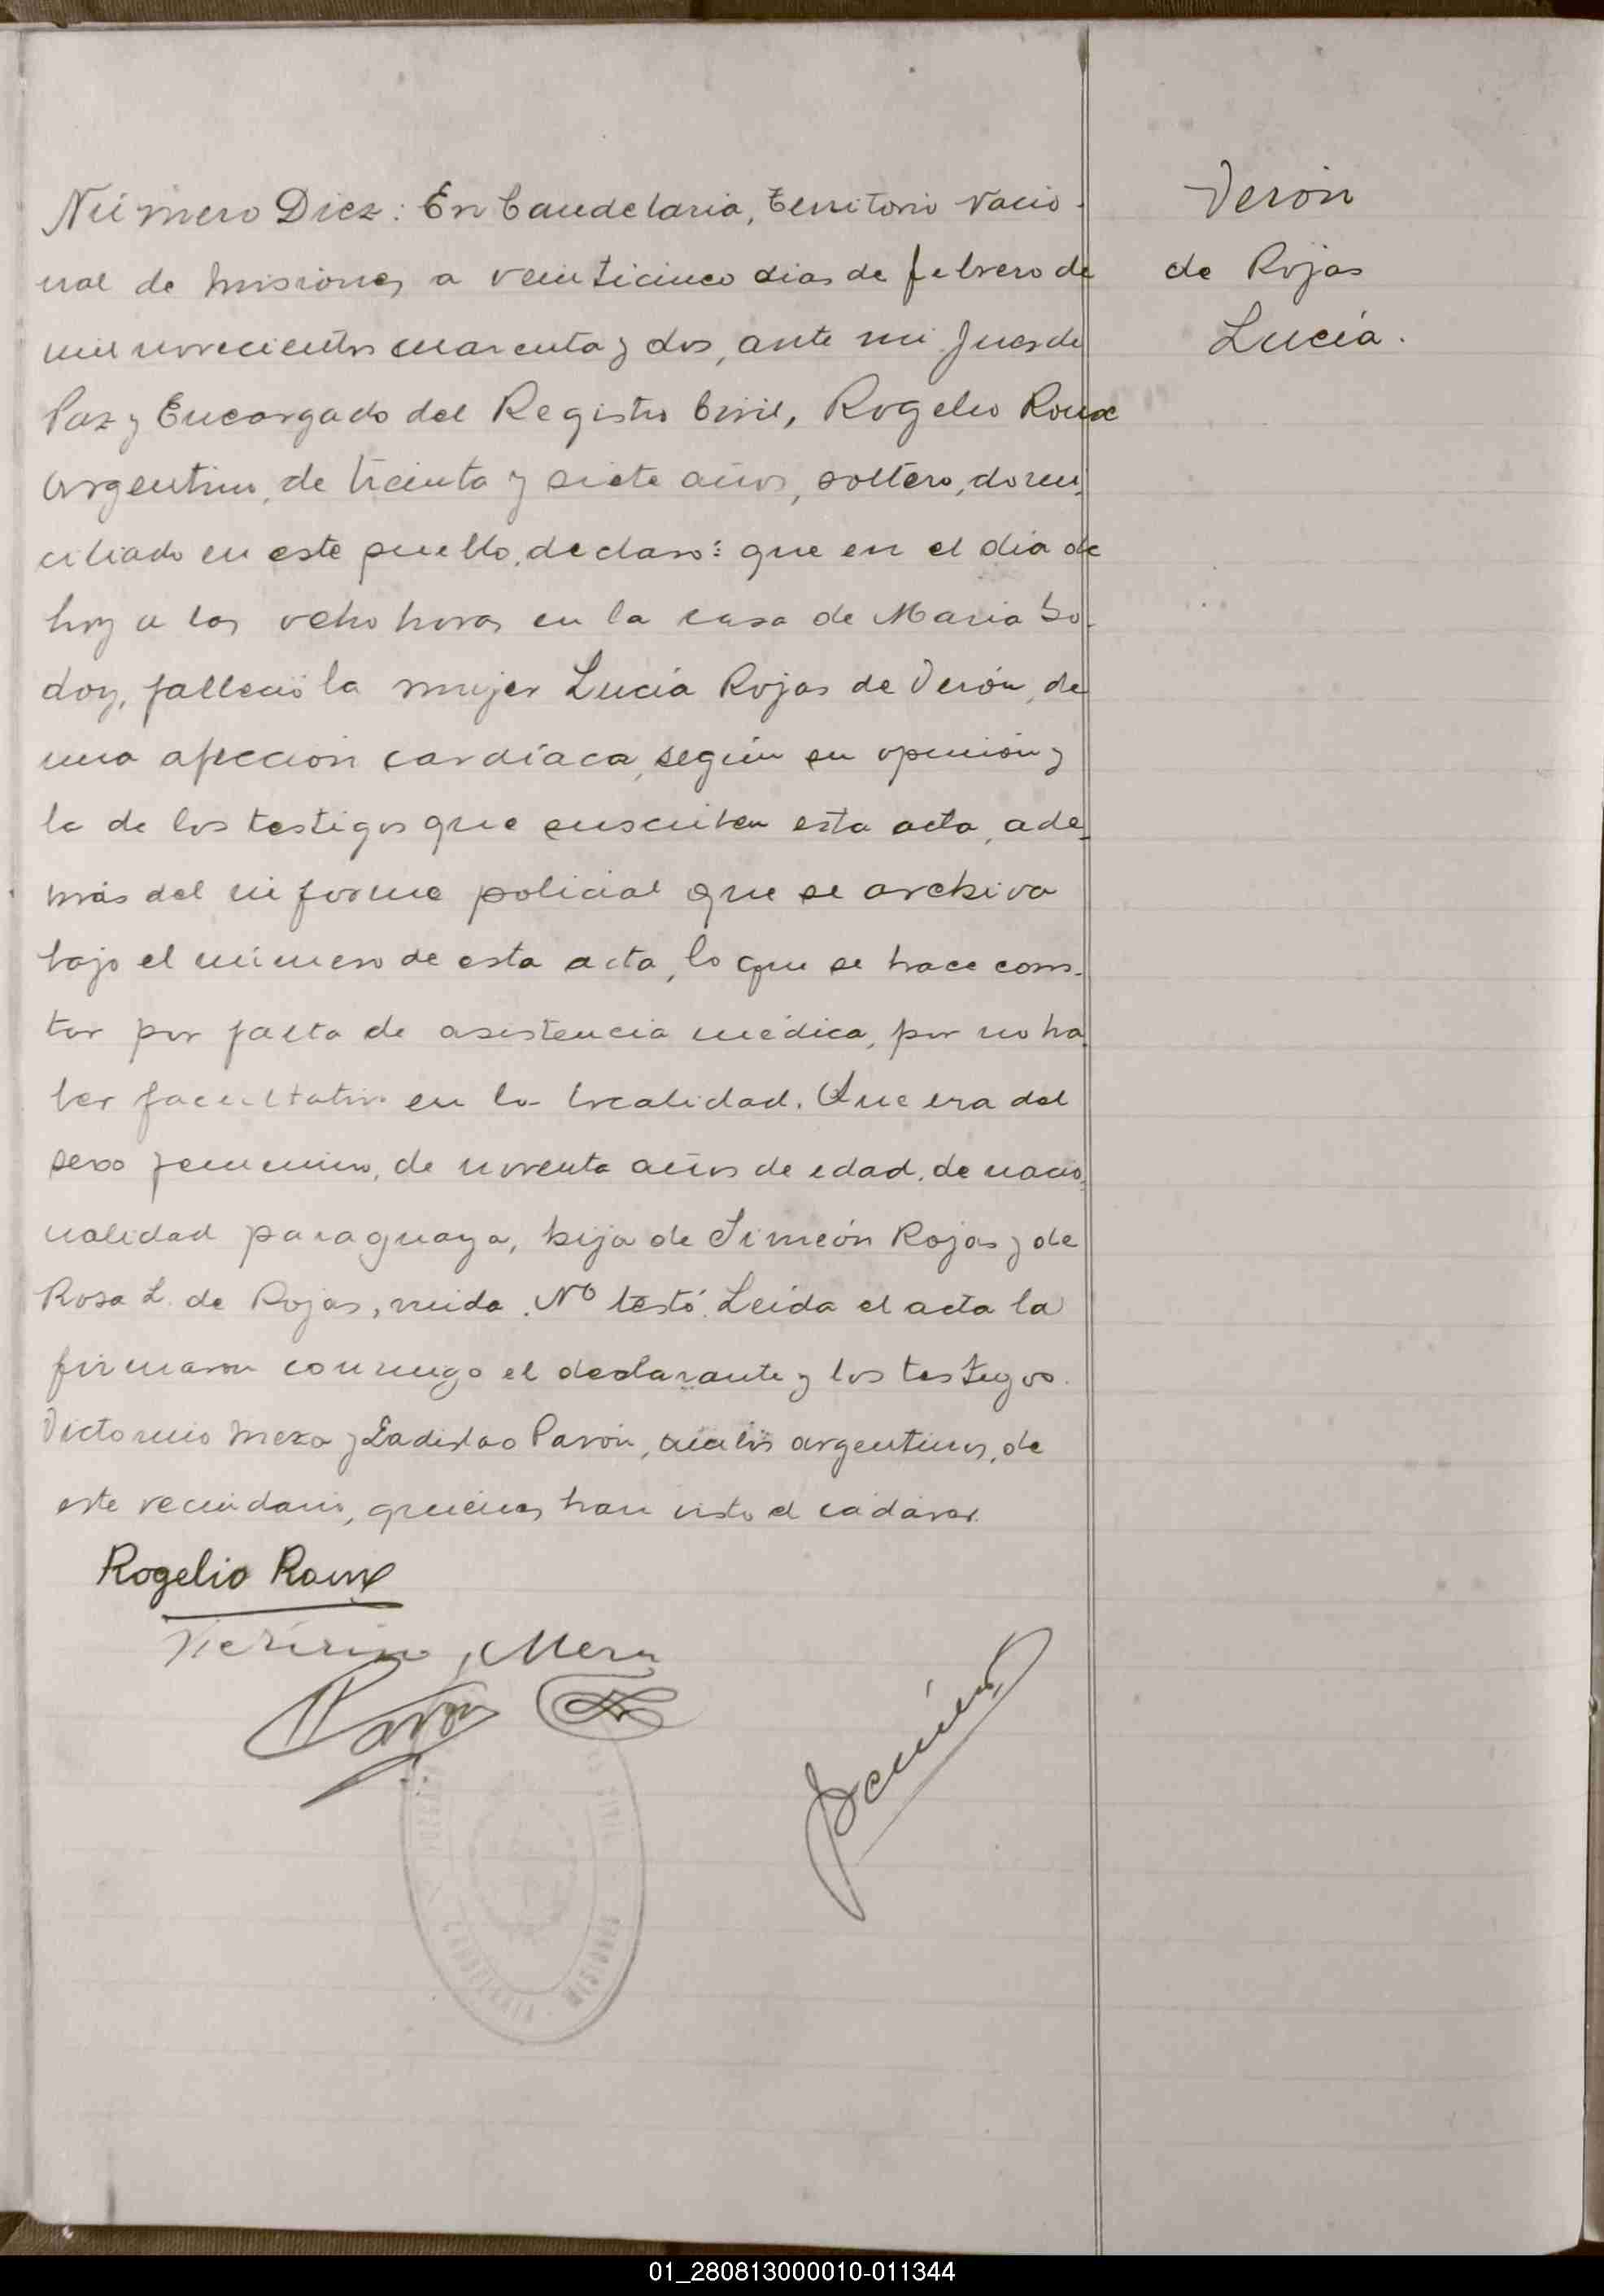 Número Diez: En Candelaria, territorio Nacio-
nal de Misiones, a veinticinco dias de febrero de
mil novecientos cuarenta y dos, ante mi Juez de
Paz y Encargado del Registro Civil, Rogelio Roux
argentino, de treinta y siete años, soltero, domi-
ciliado en este pueblo, declaro: que en el día de
hoy a las ocho horas en la casa de María Go-
doy, falleció la mujer Lucía Rojas de Verón, de
una afección cardíaca, según su opinión y
la de los testigos que suscriben esta acta, ade-
más del informe policial que se archiva
bajo el número de esta acta, lo que se hace cons-
tar por falta de asistencia médica, por no ha-
ber facultativo en la localidad. Que era del
sexo femenino, de noventa años de edad, de nacio-
nalidad paraguaya, hija de Simeón Rojas y de
Rosa L. de Rojas, viuda. No testó. Leída el acta la
firmaron conmigo el declarante y los testigos.
Victorino Meza y Ladislao Pavón, argentinos, de
este vecindario, quienes han visto el cadáver.
Rogelio Roux
Victorino Meza
Pavón
Verón
de Rojas
Lucía.
CIVIL
CANDELARIA - MISIONES
01_280813000010-011344